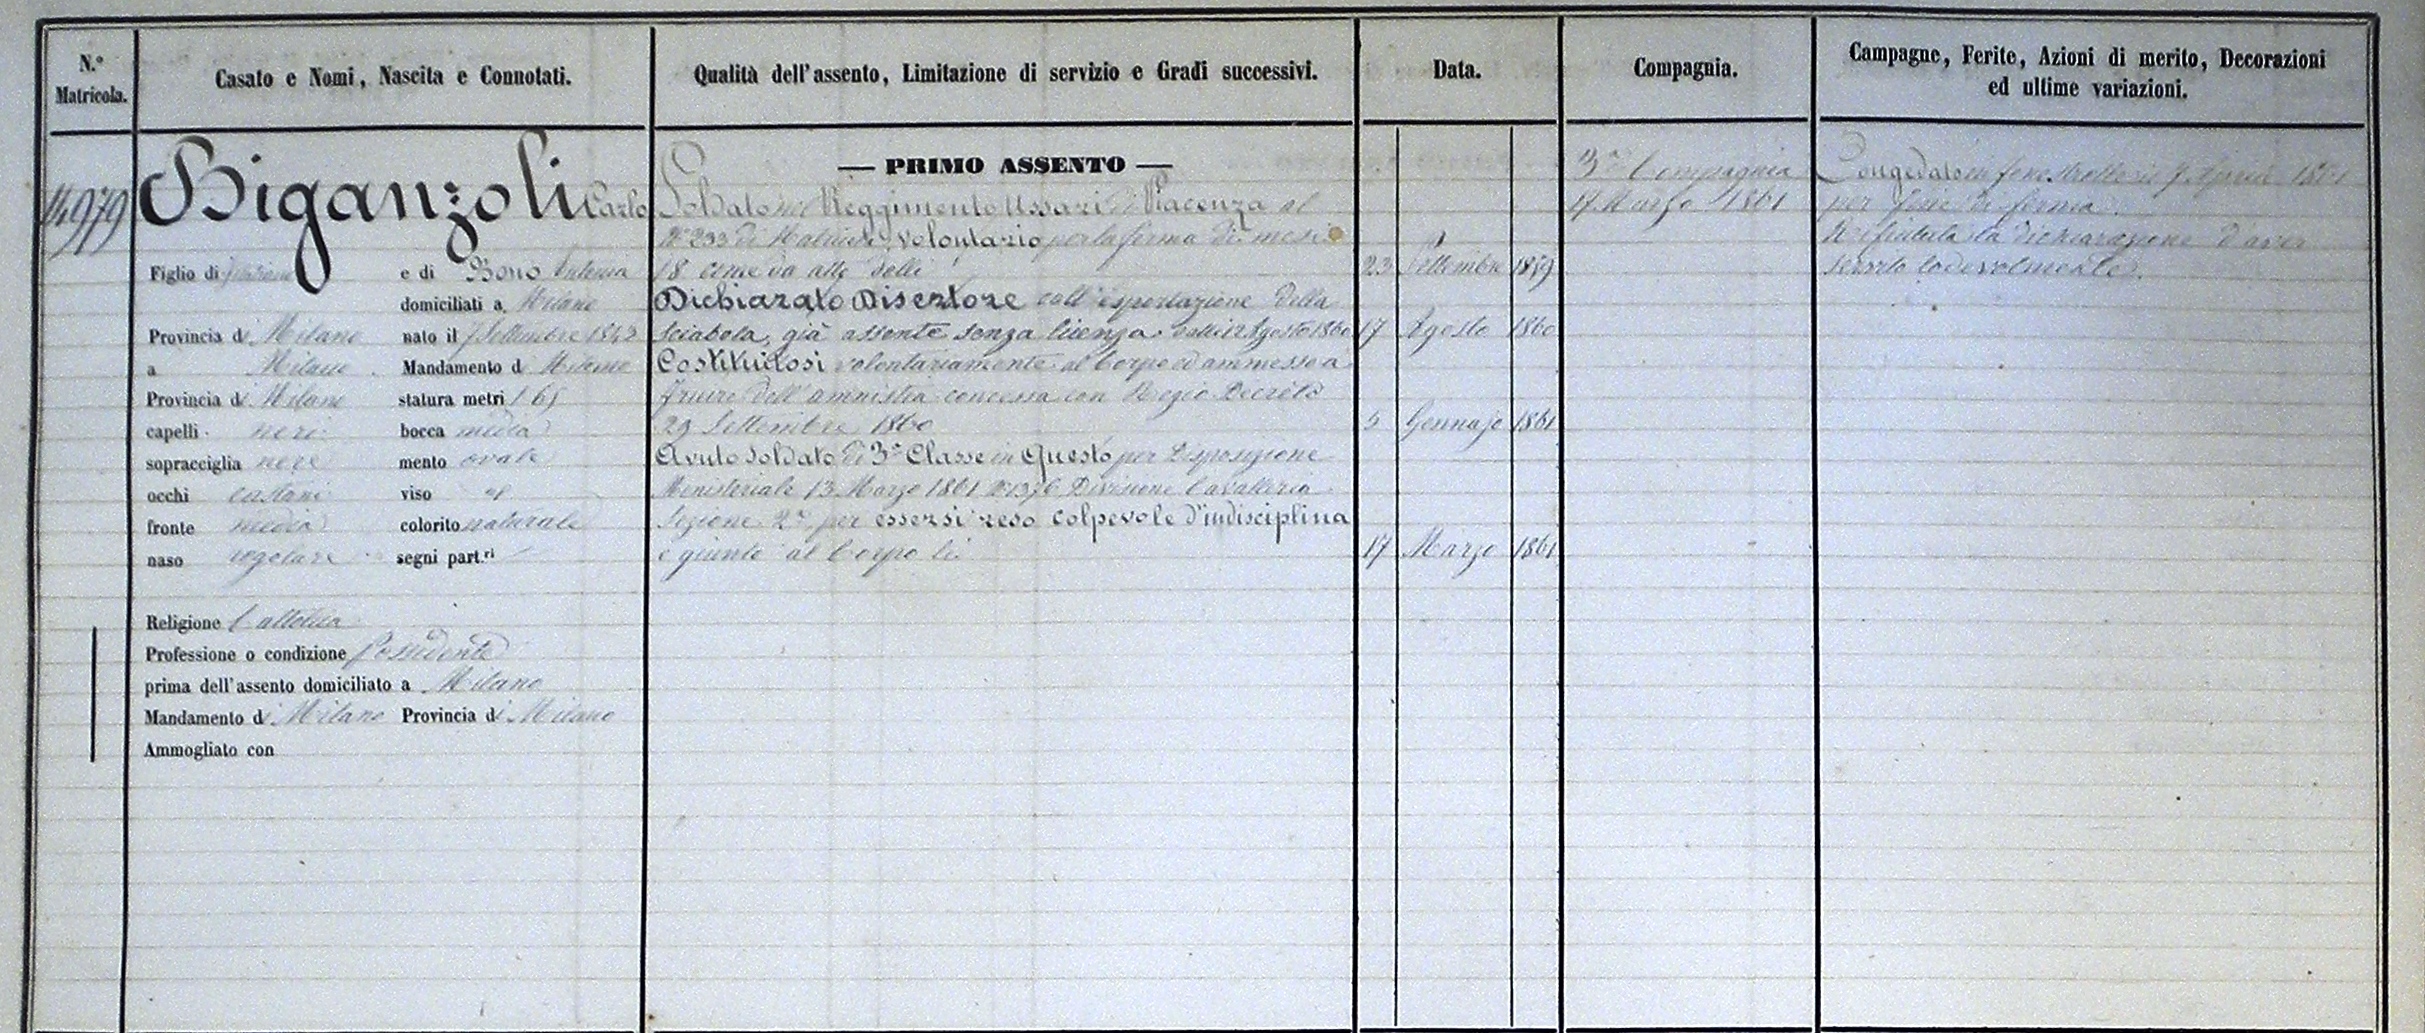 N.º Matricola.
Casato e Nomi, Nascita e Connotati.
Qualità dell'assento, Limitazione di servizio e Gradi successivi.
Data.
Compagnia.
Campagne, Ferite, Azioni di merito, Decorazioni
ed ultime variazioni.
14979
Biganzoli Carlo
Figlio di e di Bono Antonia
domiciliati a Milano
Provincia di Milano nato il 7 Settembre 1842
a Milano Mandamento di Milano
Provincia di Milano statura metri 1 65
capelli neri bocca media
sopracciglia nere mento ovale
occhi castani viso
fronte media colorito naturale
naso regolare segni part.ri
Religione Cattolica
Professione o condizione Possidente
prima dell'assento domiciliato a Milano
Mandamento di Milano Provincia di Milano
Ammogliato con
— PRIMO ASSENTO —
Soldato nel Reggimento Ussari di Piacenza al
Nº 233 di Matricola, volontario per la ferma di mesi
18 come da atto delli 23 Settembre 1859
Dichiarato Disertore coll'esportazione della
sciabola, già assente senza licenza dalli 12 Agosto 1860 17 Agosto 1860
Costituitosi volontariamente al Corpo ed ammesso a
fruire dell'amnistia concessa con Regio Decreto
29 Settembre 1860 5 Gennajo 1861
Avuto Soldato di 3ª Classe in Questo per Disposizione
Ministeriale 13 Marzo 1861 Nº 1376 Divisione Cavalleria
Sezione 2ª per essersi reso colpevole d'indisciplina
e giunto al Corpo li 17 Marzo 1861
3ª Compagnia
17 Marzo 1861
Congedato in Fenestrelle li Aprile 1861
per fine di ferma.
Rifiutata la dichiarazione d'aver
servito lodevolmente.